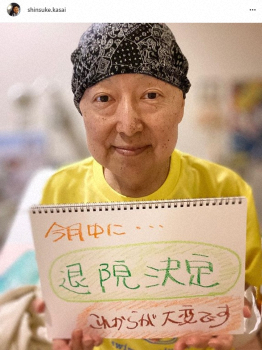 shinsuke.kasai
今月中に・・・
退院決定
これからが大変です